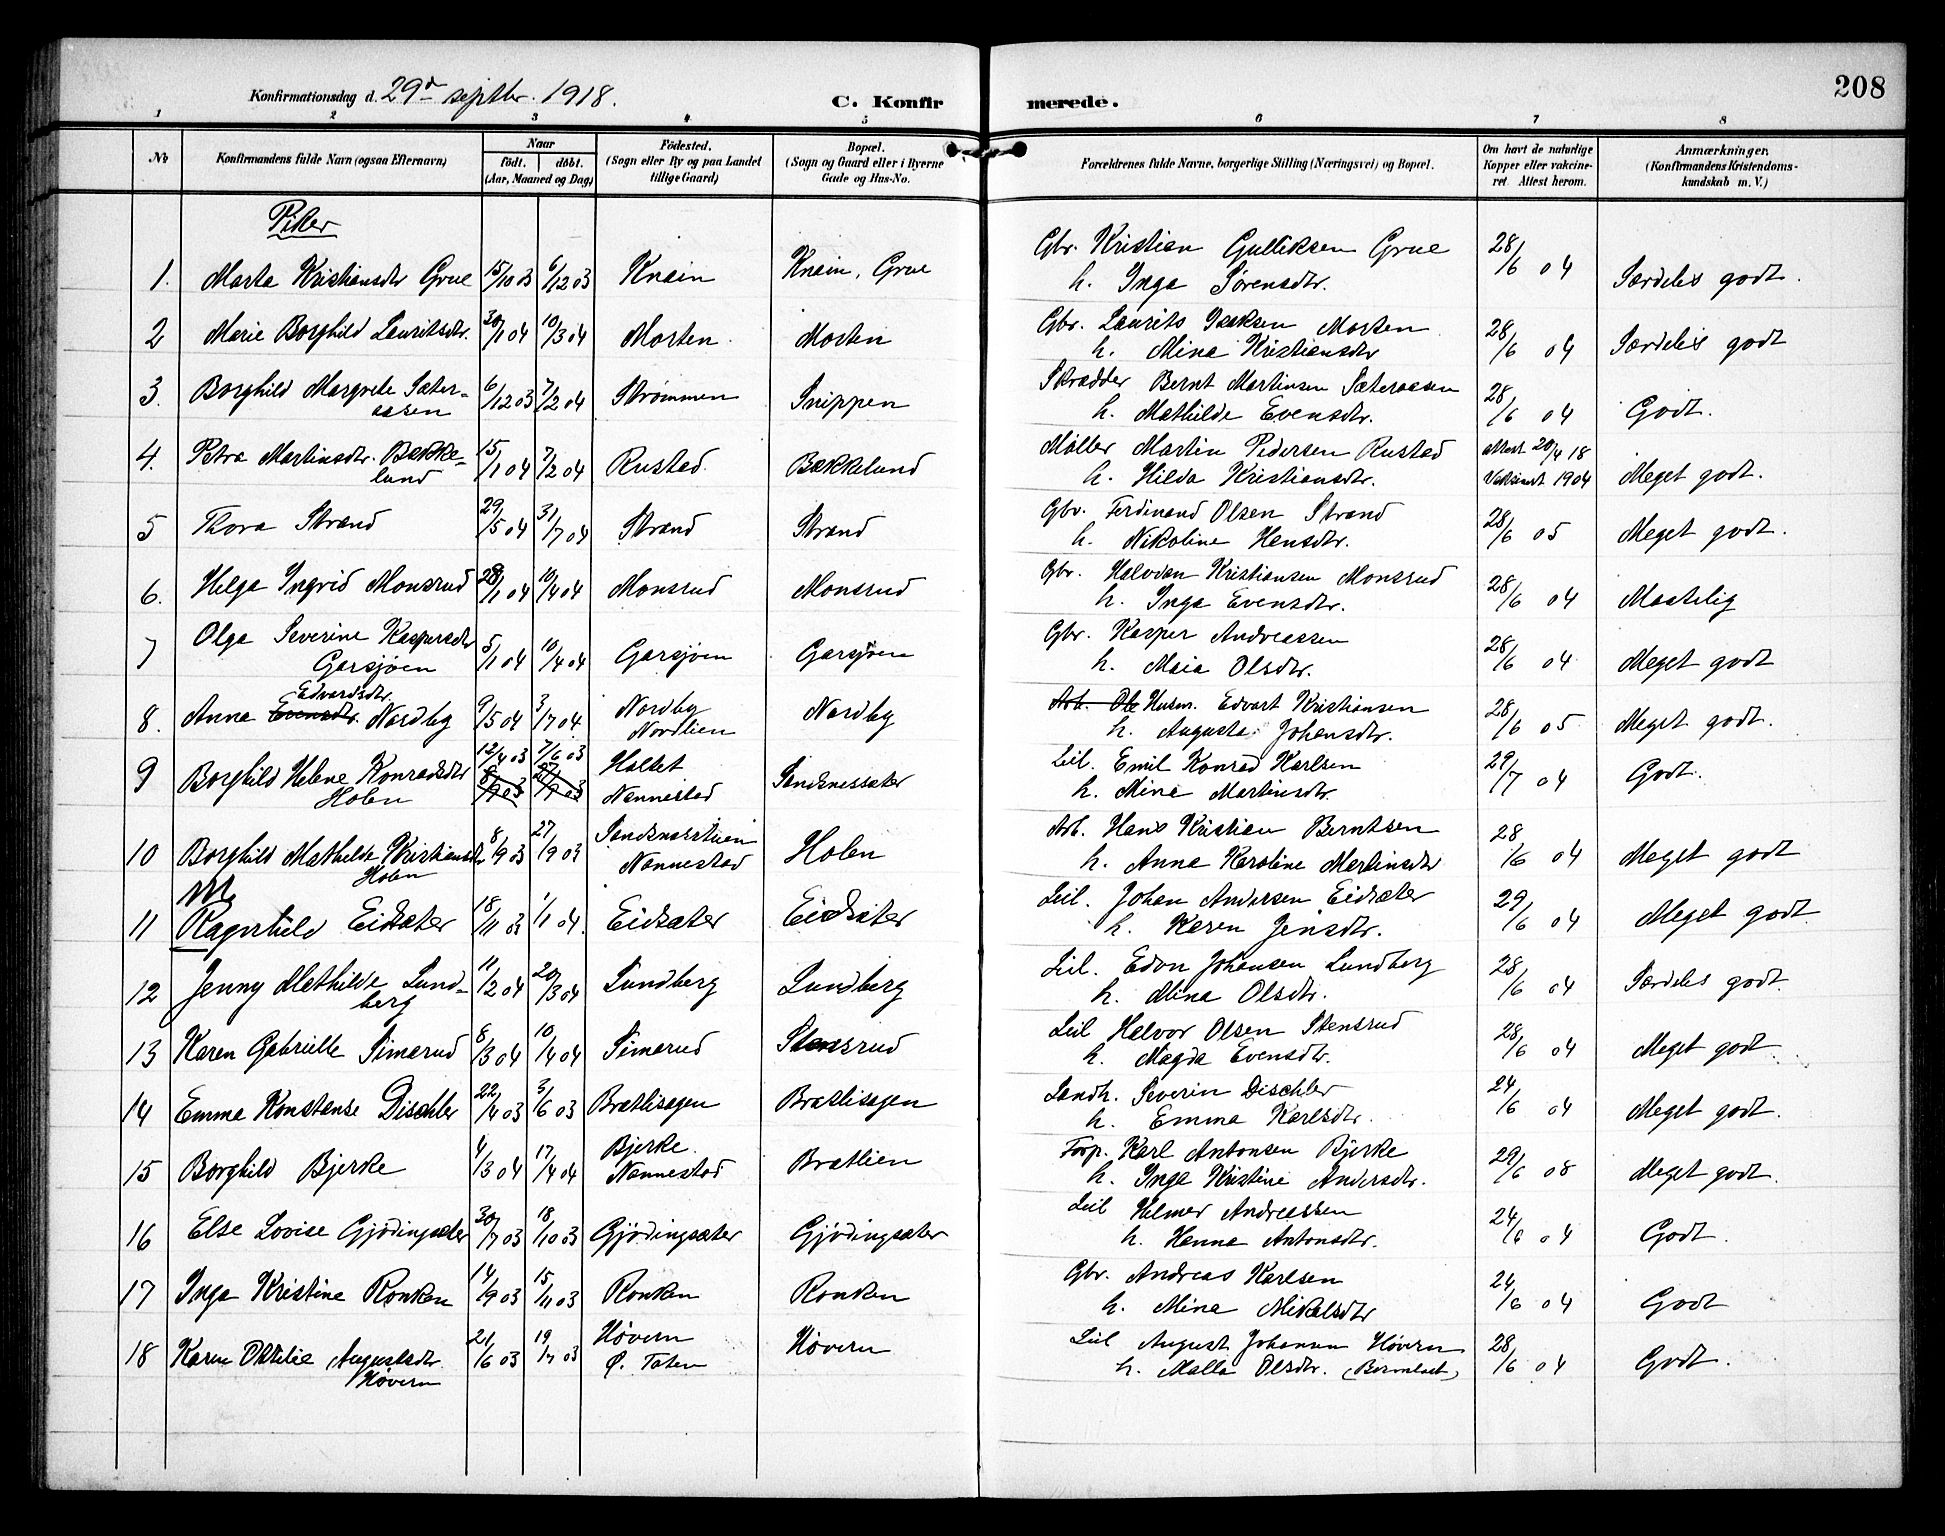 208
Konfirmationsdag d. 29de septbr. 1918.
C. Konfirmerede.
1 2 3 4 5 6 7 8
No
Konfirmandens fulde Navn (ogsaa Efternavn)
Naar
født. døbt.
(Aar, Maaned og Dag)
Fødested.
(Sogn eller By og paa Landet tillige Gaard)
Bopæl.
(Sogn og Gaard eller i Byerne Gade og Hus-No.
Forældrenes fulde Navne, borgerlige Stilling (Næringsvei) og Bopæl.
Om havt de naturlige Kopper eller vakcineret. Attest herom.
Anmærkninger.
(Konfirmandens Kristendomskundskab m. V.)
Piker
1. Marta Kristiansdtr Grue 15/10 03 6/12 03 Knain Knain, Grue Gbr. Kristian Gulliksen Grue 28/6 04 Særdeles godt.
h. Inga Sørensdtr.
2 Marie Borghild Lauritsdtr. 30/1 04 10/3 04 Morten Morten Gbr. Laurits Isaksen Morten 28/6 04 Særdeles godt
h. Mina Kristiansdtr
3. Borghild Margrete Sæter- 6/12 03 7/2 04 Strømmen Snippen Skrædder Bernt Martinsen Sæteraasen 28/6 04 Godt.
aasen h. Mathilde Evensdtr.
4. Petra Martinsdtr. Bække- 15/1 04 7/2 04 Rustad. Bækkelund Møller Martin Pedersen Rustad attest 20/4 18 Meget godt.
lund h. Hilda Kristiansdtr. Vaksinert 1904
5 Thora Strand 29/5 04 31/7 04 Strand Strand Gbr. Ferdinand Olsen Strand 28/6 05 Meget godt.
h. Nikoline Hansdtr.
6. Helga Ingrid Monsrud 29/1 04 10/4 04 Monsrud Monsrud Gbr. Halvdan Kristiansen Monsrud 28/6 04 Maatelig
h. Inga Evensdtr.
7 Olga Severine Kaspersdtr 5/1 04 10/4 04 Garsjøen Garsjøen Gbr. Kasper Andreassen 28/6 04 Meget godt
Garsjøen h. Maia Olsdtr.
Edvardsdtr.
8. Anna Evensdtr. Nordby 9/5 04 3/7 04 Nordby Nordby Arb. Ole Husm. Edvart Kristiansen 28/6 05 Meget godt.
Nordlien h. Augusta Johansdtr.
9 Borghild Helene Konradsdtr 12/4 03 7/6 03 Holtet Sandnessæter Leil. Emil Konrad Karlsen 29/7 04 Godt.
Holen 8/9 03 27/9 03 Nannestad h. Mina Martinsdtr.
10 Borghild Mathilde Kristiansdtr 8/9 03 27/9 03 Sandnesstuen Holen Arb. Hans Kristian Berntsen 28/6 04 Meget godt
Holen Nannestad h. Anna Karoline Martinsdtr
11 Ragnhild Eidsæter 18/11 03 1/1 04. Eidsæter Eidsæter Leil. Johan Andersen Eidsæter 29/6 04 Meget godt
h. Karen Jensdtr.
12 Jenny Mathilde Lund- 11/2 04 20/3 04 Lundberg Lundberg Leil. Edon Johansen Lundberg 28/6 04 Særdeles godt.
berg h. Mina Olsdtr.
13 Karen Gabrielle Simarud 8/3 04 10/4 04 Simarud Stensrud Leil Halvor Olsen Stensrud 28/6 04 Meget godt.
h. Magda Evensdtr.
14 Emma Konstanse Dischler 22/4 03 3/6 03 Brætlisagen Brætlisagen Landh. Severin Dischler 24/6 04 Meget godt.
h. Emma Karlsdtr.
15 Borghild Bjerke 4/3 04 17/4 04 Bjerke. Brætlien Forp. Karl Antonsen Bjerke 29/6 08 Meget godt.
Nannestad h. Inga Kristine Andersdtr.
16 Else Lovise Gjødingsæter 30/7 03 18/10 03 Gjødingsæter Gjødingsæter Leil Helmer Andreassen 24/6 04 Godt.
h. Hanna Antonsdtr.
17 Inga Kristine Ronken 14/9 03 15/11 03 Ronken Ronken Gbr. Andreas Karlsen 24/6 04 Godt
h. Mina Mikalsdtr
18 Karen Ottilie Augustsdtr. 21/6 03 19/7 03 Høvern Høvern Leil August Johansen Høvern 28/6 04 Godt.
Høvern Ø. Toten h. Malla Olsdtr.